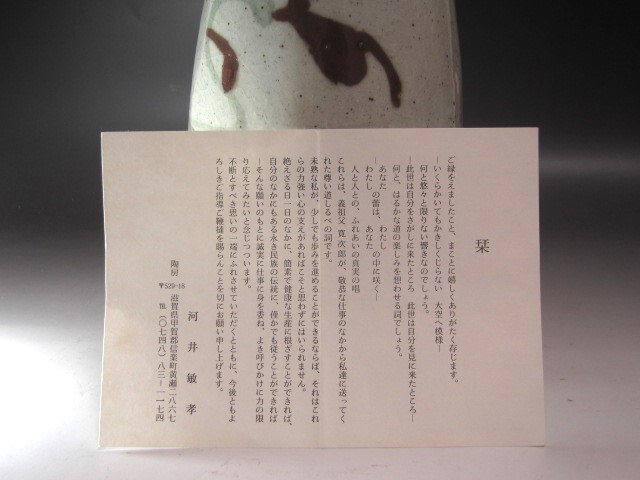 栞
ご縁をえましたこと、まことに嬉しくありがたく存じます。
―いくらかいてもかきしくじらない 大空へ模様―
何と悠々と限りない響きなのでしょう。
―此世は自分をさがしに来たところ 此世は自分を見に来たところ―
何と、はるかな道の楽しみを想わせる詞でしょう。
―あなたの蕾は、わたしの中に咲く―
―わたし あなた
人と人との、ふれあいの真実の唱
これらは、義祖父 寛次郎が、敬恭な仕事のなかから私達に送ってく
れた尊い道しるべの詞です。
未熟な私が、少しでも歩みを進めることができるならば、それはこれ
らの力強い心の支えがあればこそと思わずにはいられません。
絶えざる日一日のなかに、簡素で健康な生産に根ざすことができれば、
自分のなかにもある永き民族の伝統に、僅かでも従うことができれば
―そんな願いのもとに誠実に仕事に身を委ね、よき呼びかけに力の限
り応えてみたいと念じつついます。
不断とすべき思いの一端にふれさせていただくとともに、今後ともよ
ろしきご指導ご鞭撻を賜らんことを切にお願い申し上げます。
陶房 河井敏孝
〒529-18 滋賀県甲賀郡信楽町黄瀬二八六七
℡(〇七四八)八三―一一七四